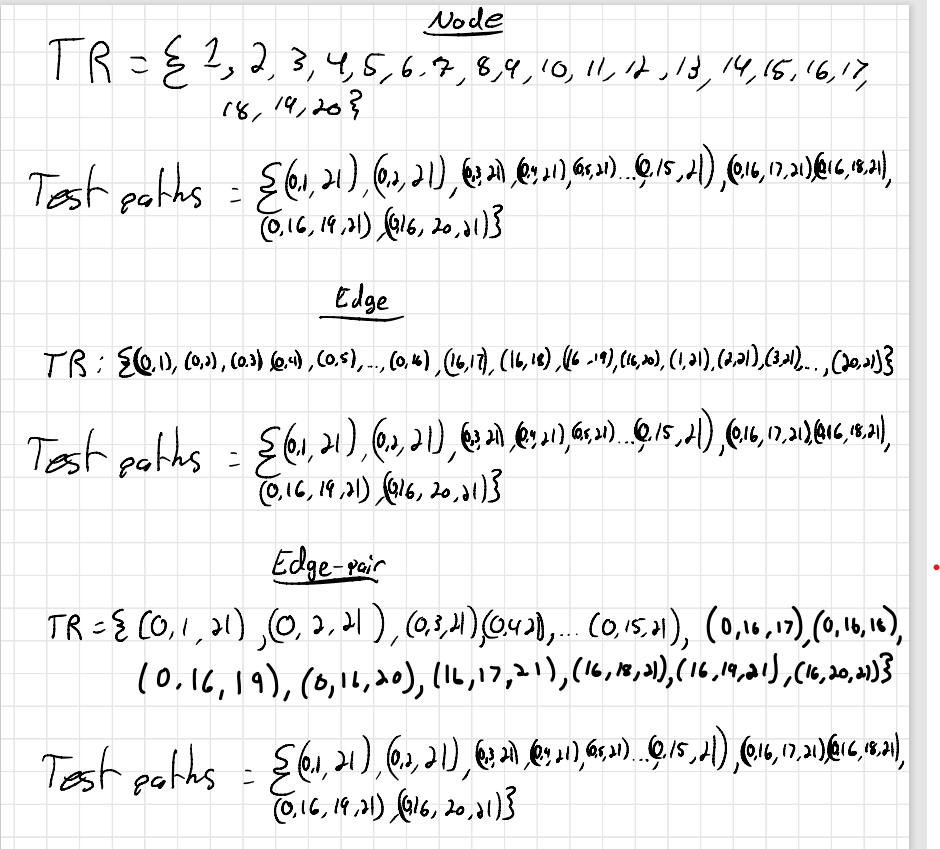 Node
TR = { 1, 2, 3, 4, 5, 6, 7, 8, 9, 10, 11, 12, 13, 14, 15, 16, 17,
18, 19, 20}
Test paths = {(0,1,21), (0,2,21), (0,3,21), (0,4,21), (0,5,21)...(0,15,21), (0,16,17,21)(0,16,18,21),
(0,16,19,21), (0,16,20,21)}
Edge
TR: {(0,1), (0,2), (0,3), (0,4), (0,5), ..., (0,16), (16,17), (16,18), (16,19), (16,20), (1,21), (2,21), (3,21), ..., (20,21)}
Test paths = {(0,1,21), (0,2,21), (0,3,21), (0,4,21), (0,5,21)...(0,15,21), (0,16,17,21)(0,16,18,21),
(0,16,19,21), (0,16,20,21)}
Edge-pair
TR = { (0,1,21), (0,2,21), (0,3,21)(0,4,21), ... (0,15,21), (0,16,17), (0,16,18),
(0,16,19), (0,16,20), (16,17,21), (16,18,21), (16,19,21), (16,20,21)}
Test paths = {(0,1,21), (0,2,21), (0,3,21), (0,4,21), (0,5,21)...(0,15,21), (0,16,17,21)(0,16,18,21),
(0,16,19,21), (0,16,20,21)}